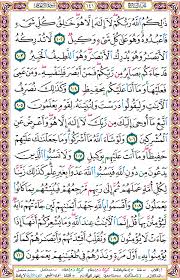 ذَٰلِكُمُ ٱللَّهُ رَبُّكُمْ لَآ إِلَٰهَ إِلَّا هُوَ خَٰلِقُ كُلِّ شَىْءٍ
فَٱعْبُدُوهُ وَهُوَ عَلَىٰ كُلِّ شَىْءٍ وَكِيلٌ ١٠٢ لَّا تُدْرِكُهُ
ٱلْأَبْصَٰرُ وَهُوَ يُدْرِكُ ٱلْأَبْصَٰرَ وَهُوَ ٱللَّطِيفُ ٱلْخَبِيرُ ١٠٣
قَدْ جَآءَكُم بَصَآئِرُ مِن رَّبِّكُمْ فَمَنْ أَبْصَرَ فَلِنَفْسِهِۦ وَمَنْ عَمِىَ
فَعَلَيْهَا وَمَآ أَنَا۠ عَلَيْكُم بِحَفِيظٍ ١٠٤ وَكَذَٰلِكَ نُصَرِّفُ
ٱلْءَايَٰتِ وَلِيَقُولُوا۟ دَرَسْتَ وَلِنُبَيِّنَهُۥ لِقَوْمٍ يَعْلَمُونَ ١٠٥
ٱتَّبِعْ مَآ أُوحِىَ إِلَيْكَ مِن رَّبِّكَ لَآ إِلَٰهَ إِلَّا هُوَ وَأَعْرِضْ عَنِ
ٱلْمُشْرِكِينَ ١٠٦ وَلَوْ شَآءَ ٱللَّهُ مَآ أَشْرَكُوا۟ وَمَا جَعَلْنَٰكَ عَلَيْهِمْ
حَفِيظًا وَمَآ أَنتَ عَلَيْهِم بِوَكِيلٍ ١٠٧ وَلَا تَسُبُّوا۟ ٱلَّذِينَ
يَدْعُونَ مِن دُونِ ٱللَّهِ فَيَسُبُّوا۟ ٱللَّهَ عَدْوًۢا بِغَيْرِ عِلْمٍ كَذَٰلِكَ زَيَّنَّا
لِكُلِّ أُمَّةٍ عَمَلَهُمْ ثُمَّ إِلَىٰ رَبِّهِم مَّرْجِعُهُمْ فَيُنَبِّئُهُم بِمَا
كَانُوا۟ يَعْمَلُونَ ١٠٨ وَأَقْسَمُوا۟ بِٱللَّهِ جَهْدَ أَيْمَٰنِهِمْ لَئِن جَآءَتْهُمْ ءَايَةٌ
لَّيُؤْمِنُنَّ بِهَا قُلْ إِنَّمَا ٱلْءَايَٰتُ عِندَ ٱللَّهِ وَمَا يُشْعِرُكُمْ أَنَّهَآ إِذَا
جَآءَتْ لَا يُؤْمِنُونَ ١٠٩ وَنُقَلِّبُ أَفْـِٔدَتَهُمْ وَأَبْصَٰرَهُمْ كَمَا
لَمْ يُؤْمِنُوا۟ بِهِۦٓ أَوَّلَ مَرَّةٍ وَنَذَرُهُمْ فِى طُغْيَٰنِهِمْ يَعْمَهُونَ ١١٠